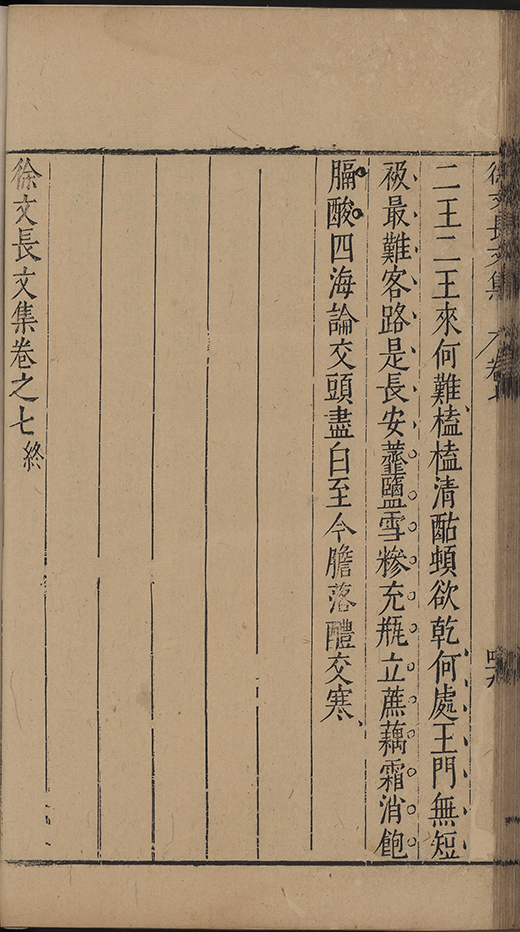 二王二王來何難榼榼清酤頓欲乾何處王門無短
衱最難客路是長安虀鹽雪糝充瓶立蔗藕霜消飽
膈酸四海論交頭盡白至今膽落醴交寒
徐文長文集卷之七終